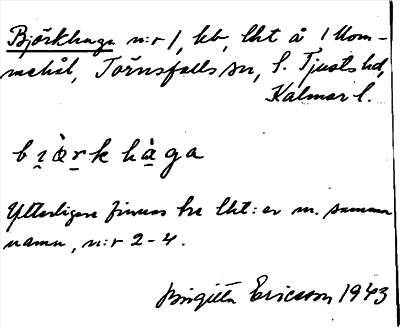 Björkhaga n:r 1, hb, lht å 1 Kom-
mehål, Törnsfalls sn, S. Tjusts hd,
Kalmar l.
bı̣ὰ̣ṛk hὰ̣ga
Ytterligare finnes tre lht:er m. samma
namn, n:r 2-4.
Birgitta Ericsson 1943